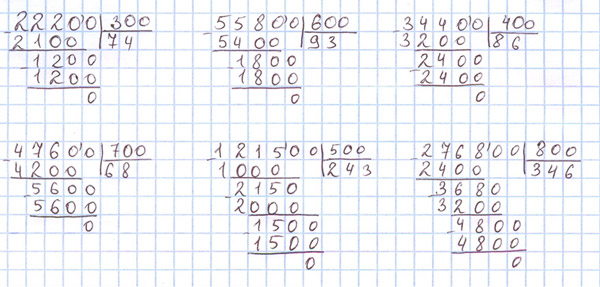 22200 300
- 2100 74
1200
- 1200
0
55800 600
- 5400 93
1800
- 1800
0
34400 400
- 3200 86
2400
- 2400
0
47600 700
- 4200 68
5600
- 5600
0
121500 500
- 1000 243
2150
- 2000
1500
- 1500
0
276800 800
- 2400 346
3680
- 3200
4800
- 4800
0